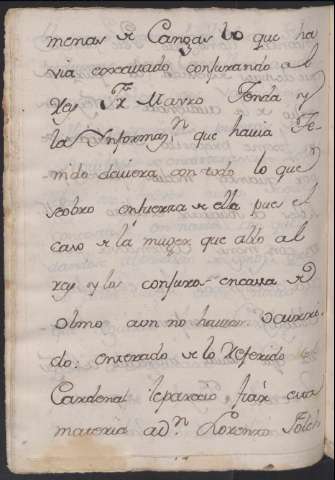 menas de Cangas lo que ha
via executado conjurando al
Rey Fr. Mauro Tenda y
la Ynformaⁿ que havia Te
nido deviera, con todo lo que
se obro en fuerza de ella pues el
caso de la muger que allo al
rey y los conjuros en casa de
Olmo aun no havian ocurri
do: enterado de lo Referido el
Cardenal le parecio, fiar esta
materia a dⁿ. Lorenzo Folch